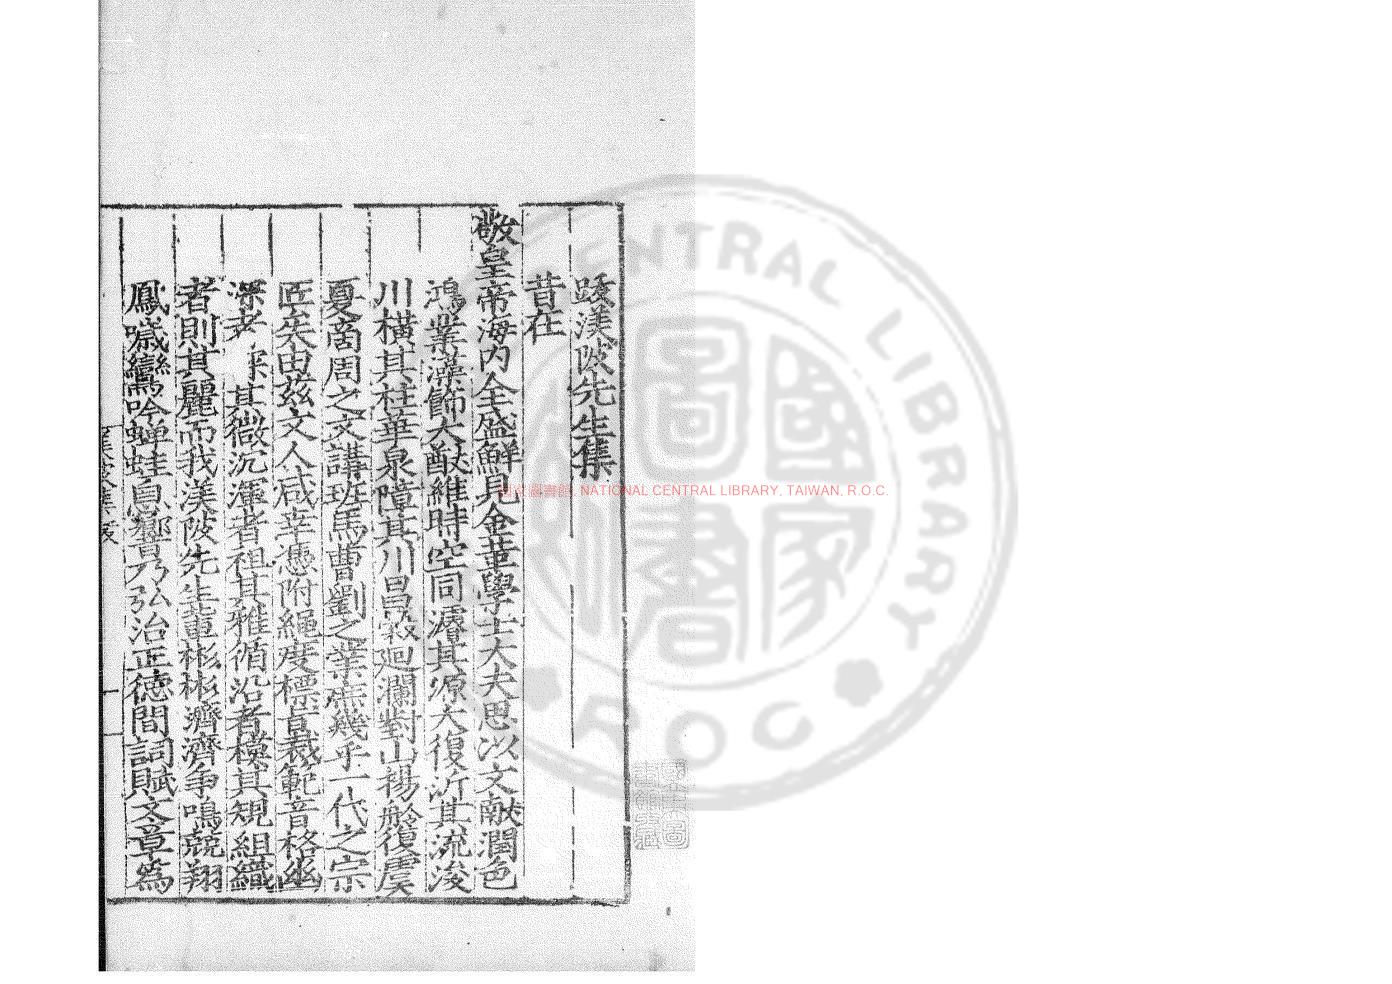 跋渼陂先生集
昔在
敬皇帝海内全盛觧見金革學士大夫思以文献潤色
鴻業藻飾大猷維時空同濬其源大復泝其流浚
川橫其柱華泉障其川昌糓廻瀾對山揚舲復虞
夏商周之文講班馬曹劉之業蔗幾乎一代之宗
匠矣由兹文人咸幸憑附繩度標㫖裁範音格幽
深者 其微沉渾者祖其雅循沿者模其䂓組織
者則其麗而我渼陂先生軰彬彬濟濟争鳴競翔
鳳噦鸞吟蟬蛙息響乃弘治正德間詞賦文章為
國家圖書館 NATIONAL CENTRAL LIBRARY, TAIWAN, R.O.C.
CENTRAL LIBRARY
ROC
國家圖書